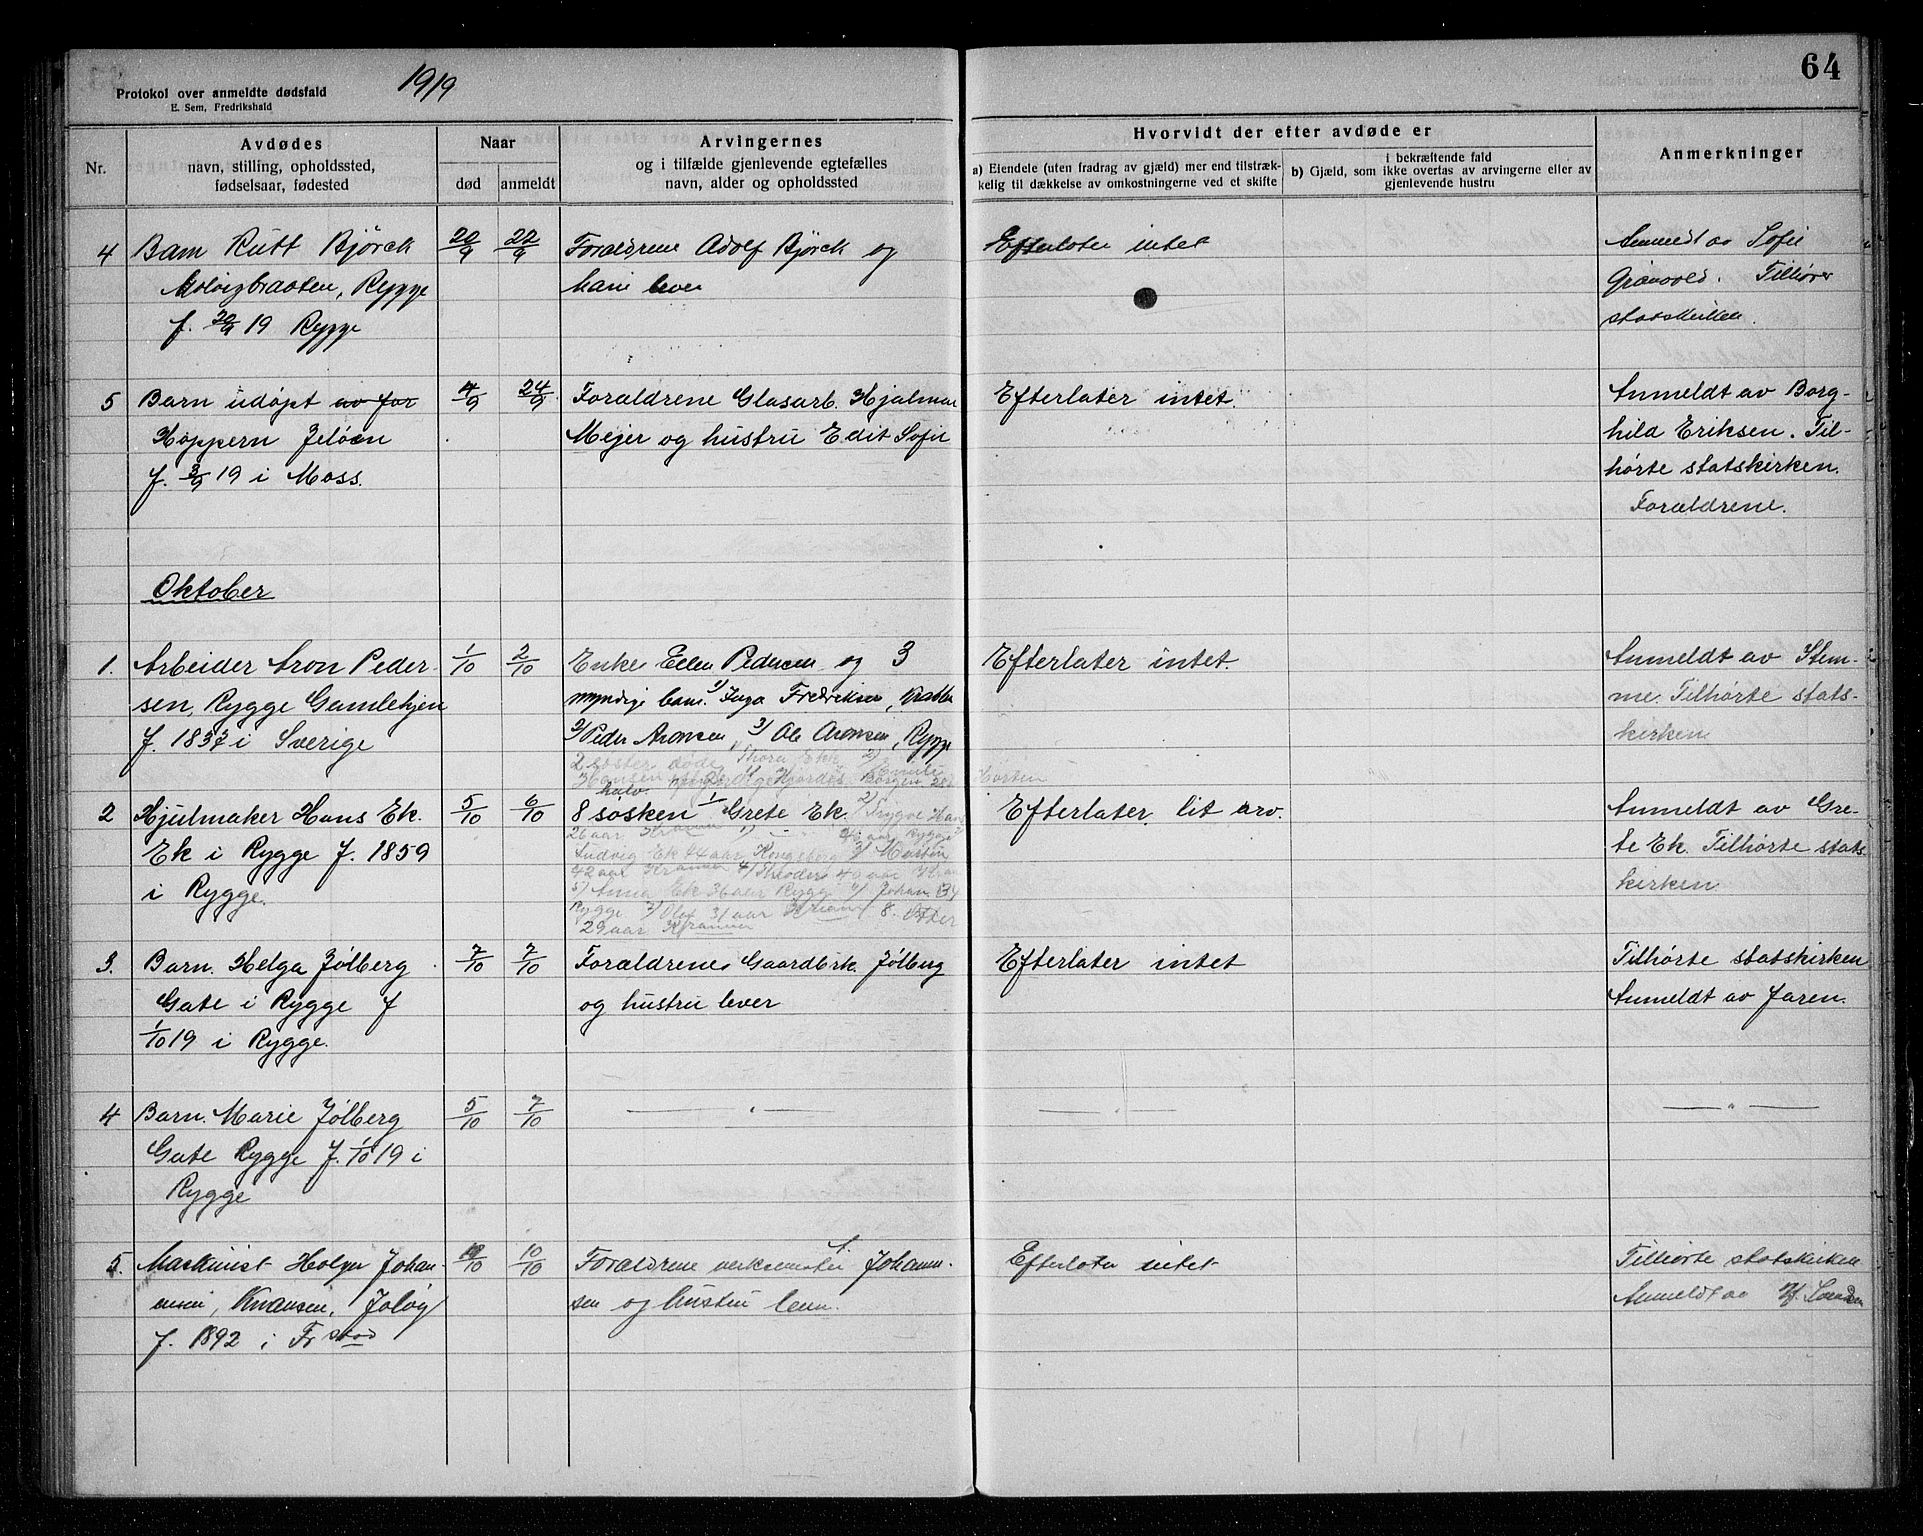 64
1919
Protokol over anmeldte dødsfald
E. Sem, Fredrikshald
Nr.
Avdødes
navn, stilling, opholdssted,
fødselsaar, fødested
Naar
død
anmeldt
Arvingernes
og i tilfælde gjenlevende egtefælles
navn, alder og opholdssted
Hvorvidt der efter avdøde er
a) Eiendele (uten fradrag av gjæld) mer end tilstræk-
kelig til dækkelse av omkostningerne ved et skifte
i bekræftende fald
b) Gjæld, som ikke overtas av arvingerne eller av
gjenlevende hustru
Anmerkninger
4
Barn Rutt Bjørck
Rygge
f. 20/9 19 Rygge
20/9
22/9
Forældrene Adolf Bjørck og
lever
Efterlater intet
Anmeldt av Sofie
Grønvold. Tilhører
statskirken.
5
Barn udøpt av for
Høppern Jeløen
f. 3/9 19 i Moss.
4/9
24/9
Forældrene Glasarb. Hjalmar
Mejer og hustru Edit Sofie
Efterlater intet.
Anmeldt av Borg-
hild Eriksen. Til-
hørte statskirken.
Forældrene.
Oktober
1.
Arbeider Aron Peder-
sen, Rygge Gamlehjem
f. 1837 i Sverige
1/10
2/10
Enke Ellen Pedersen og 3
myndige barn. 1) Inga Fredriksen, Krabben
2) Peder Aronsen, 3) Ole Aronsen, Rygge
Efterlater intet.
Anmeldt av Stem-
me. Tilhørte stats-
kirken
2 søster døde Thora Ek 2) Emilie
Hansen Hjørdis Borgen 28 Horten
halv.
2
Hjulmaker Hans Ek.
Ek i Rygge f. 1859
i Rygge.
5/10
6/10
8 søsken 1/ Grete Ek. 2) Trygve Hans
26 aar 40 aar Rygge
Ludvig Ek 44 aar Kongsberg 3/ Martin
42 aar 4/ Theodor 40 aar
5) Anna Ek 36 aar Rygge 6/ Johan 34
Rygge 7/ Olaf 31 aar 8. Peder
29 aar
Efterlater lit arv.
Anmeldt av Gre-
te Ek. Tilhørte stats-
kirken
3.
Barn. Helga Jølberg
Gate i Rygge f
1/10 19 i Rygge.
7/10
7/10
Forældrene Gaardbrk. Jølberg
og hustru lever
Efterlater intet
Tilhørte statskirken
Anmeldt av Jaren.
4
Barn. Marie Jølberg
Gate Rygge f. 1/10 19 i
Rygge
5/10
7/10
— " —
— " —
— " —
5.
Maskinist Holger Johan-
nesen, Knausen, Jeløy
f. 1892 i Fr.stad
10/10
10/10
Forældrene verksmester L. Johannes-
sen og hustru lever.
Efterlater intet
Tilhørte statskirken
Anmeldt av